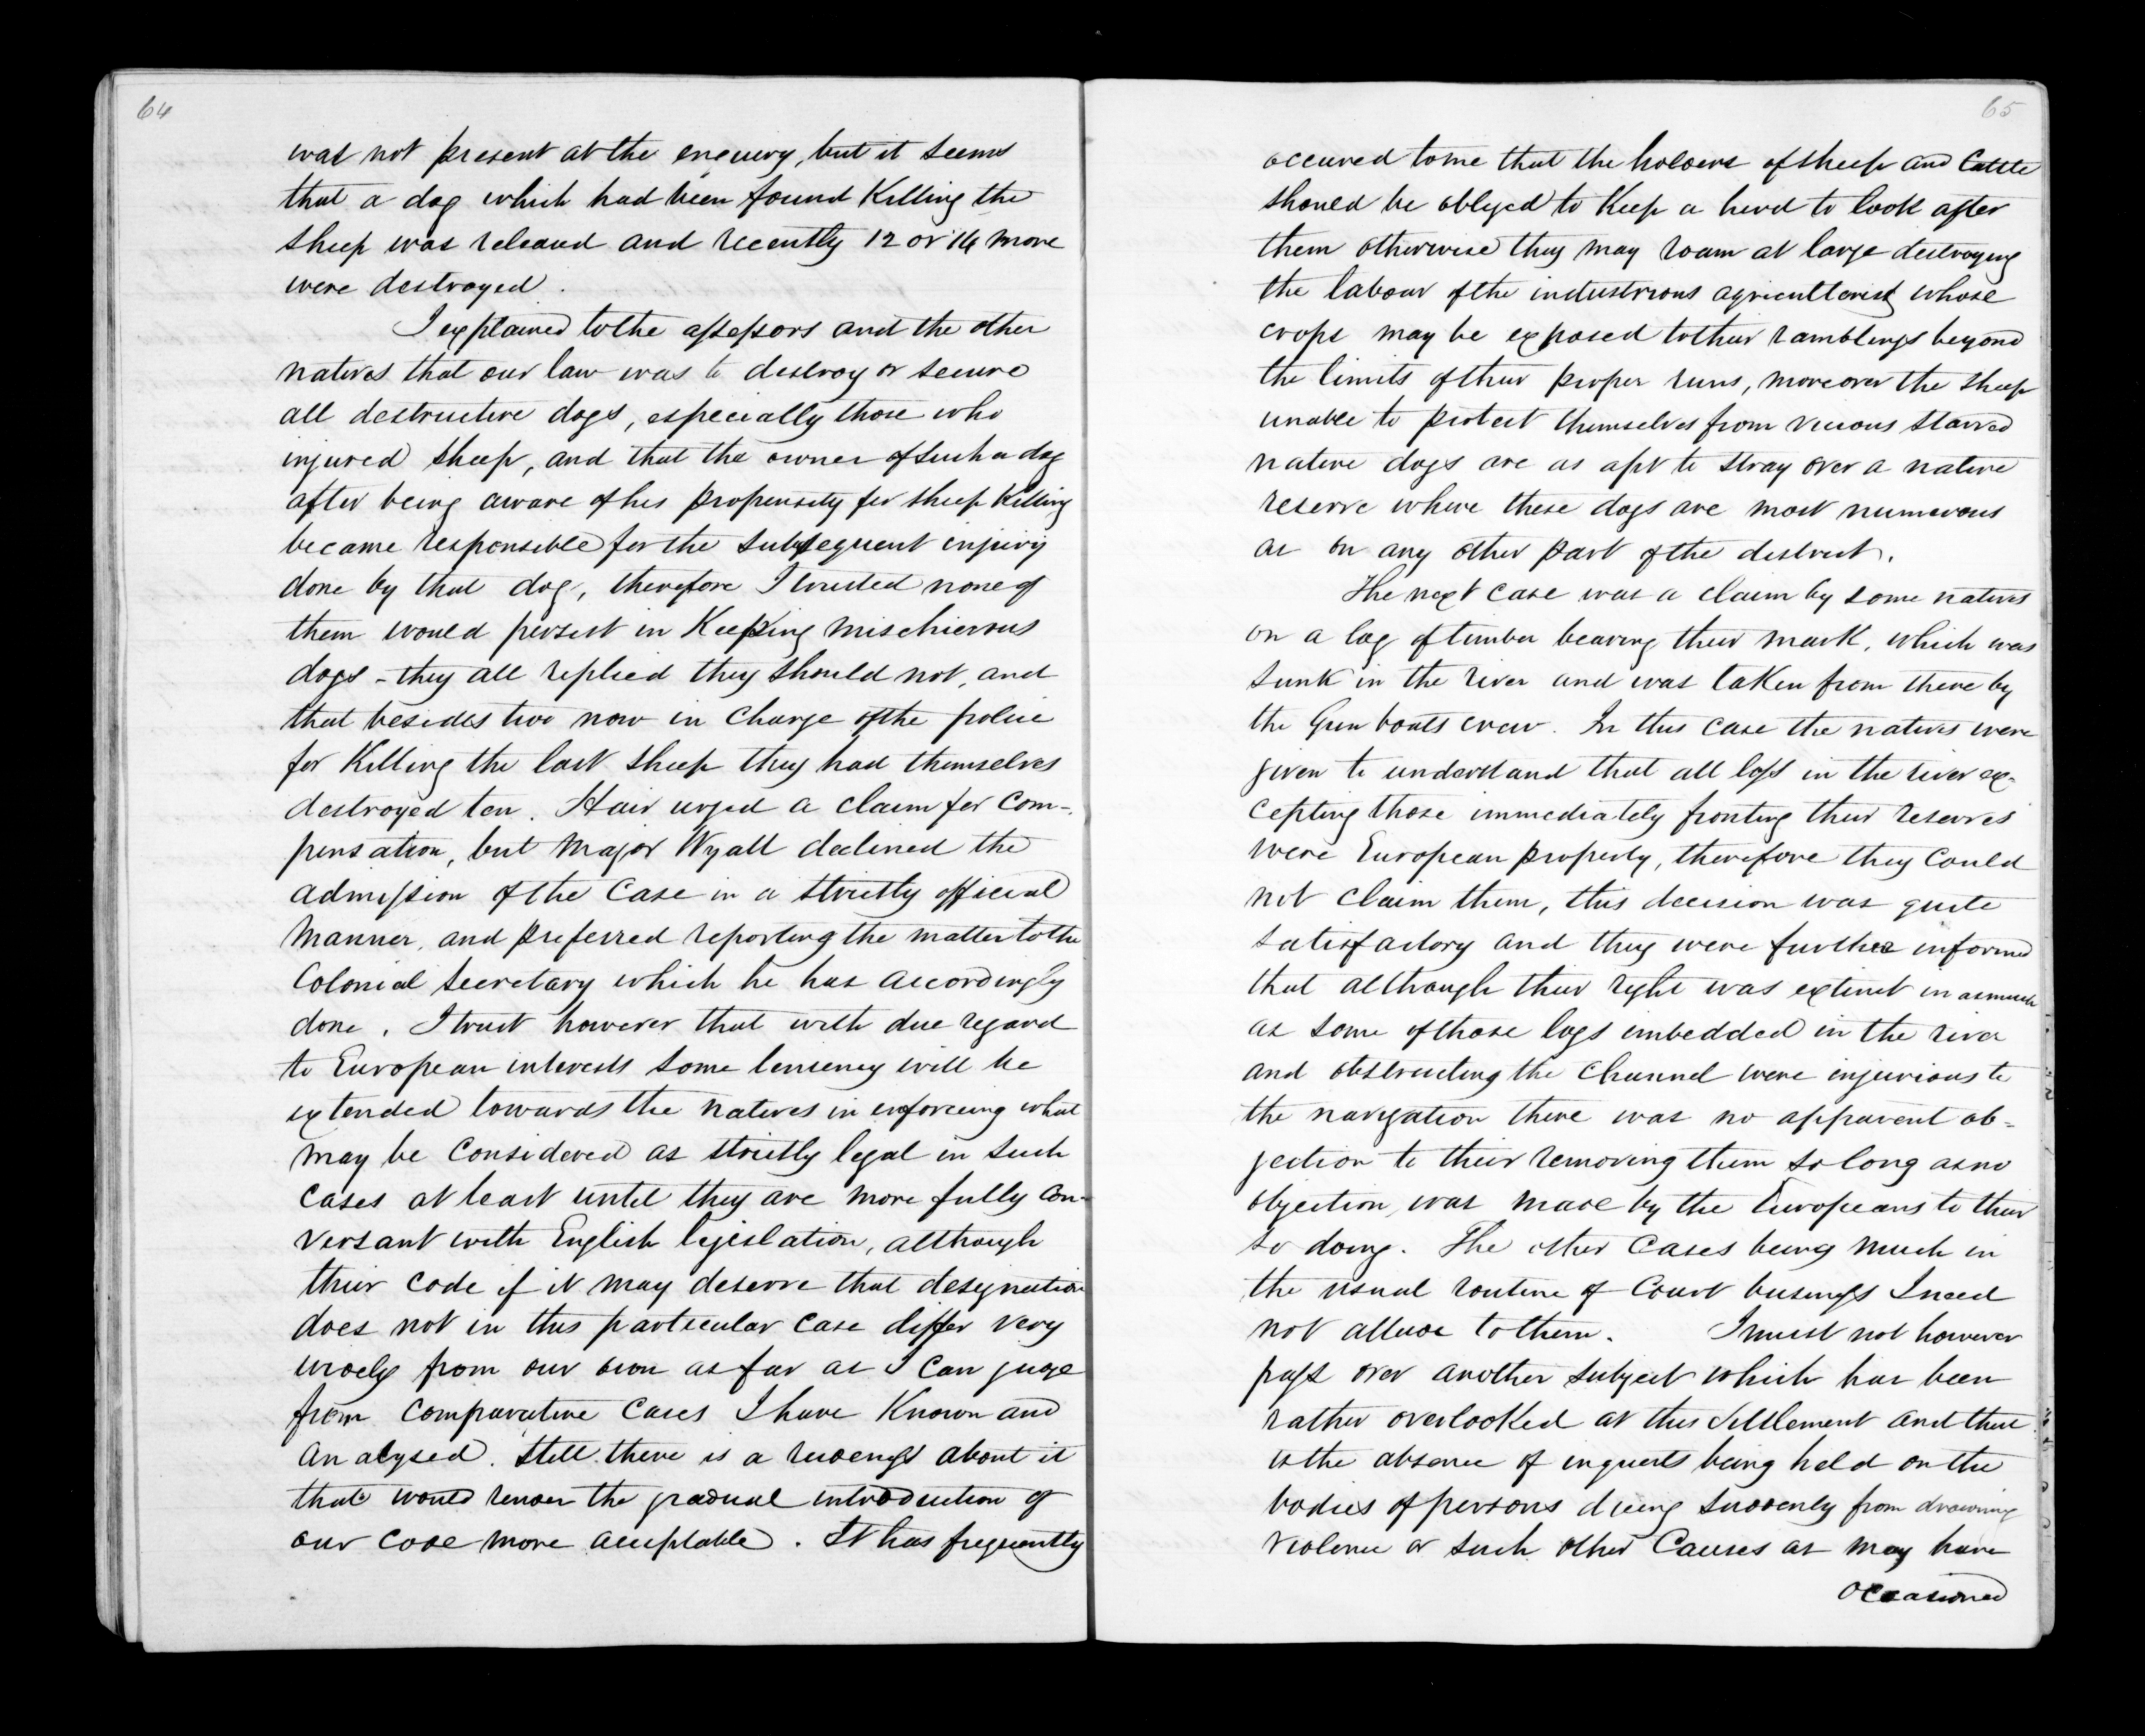 64
was not present at the enquiry, but it seems
that a dog which had been found Killing the
sheep was released and recently 12 or 14 more
were destroyed.
I explained to the assessors and the other
natives that our law was to destroy or secure
all destructive dogs, especially those who
injured sheep, and that the owner of such a dog
after being aware of his propensity for sheep Killing
became responsible for the subsequent injury
done by that dog, therefore I trusted none of
them would persist in Keeping mischievous
dogs - they all replied they should not, and
that besides two now in charge of the police
for Killing the last sheep they had themselves
destroyed ten. Hair urged a claim for com-
pensation, but Major Wyatt declined the
admission of the Case in a strictly official
manner, and preferred reporting the matter to the
Colonial Secretary which he has accordingly
done. I trust however that with due regard
to European interests some leniency will be
extended towards the natives in enforceing what
may be Considered as strictly legal in such
Cases at least until they are more fully Con-
versant with English legislation, although
their code if it may deserve that designation
does not in this particular Case differ very
widely from our own as far as I can judge
from comparative Cases I have Known and
analysed. Still there is a rudeness about it
that would render the gradual introduction of
our code more acceptable. It has frequently
65
occured to me that the holders of sheep and Cattle
should be obliged to Keep a herd to look after
them otherwise they may roam at large destroying
the labour of the industrious agriculturist whose
crops may be exposed to their ramblings beyond
the limits of their proper runs, moreover the sheep
unable to protect themselves from vicious starved
native dogs are as apt to stray over a native
reserve where these dogs are most numerous
as on any other part of the district.
The next Case was a claim by some natives
on a log of timber bearing their mark, which was
sunk in the river and was taKen from there by
the Gun boats crew. In this Case the natives were
given to understand that all logs in the river ex-
cepting those immediately fronting their reserves
were European property, therefore they Could
not claim them, this decision was quite
satisfactory and they were further informed
that although their right was extinct in asmuch
as some of those logs imbedded in the river
and obstructing the Channel were injurious to
the navigation there was no apparent ob-
jection to their removing them so long as no
objection was made by the Europeans to their
so doing. The other Cases being much in
the usual routine of Court business I need
not allude to them. I must not however
pass over another subject which has been
rather overlooKed at this Settlement and that
is the absence of inquests being held on the
bodies of persons dieing suddenly from drowning
violence or such other Causes as may have
occasioned